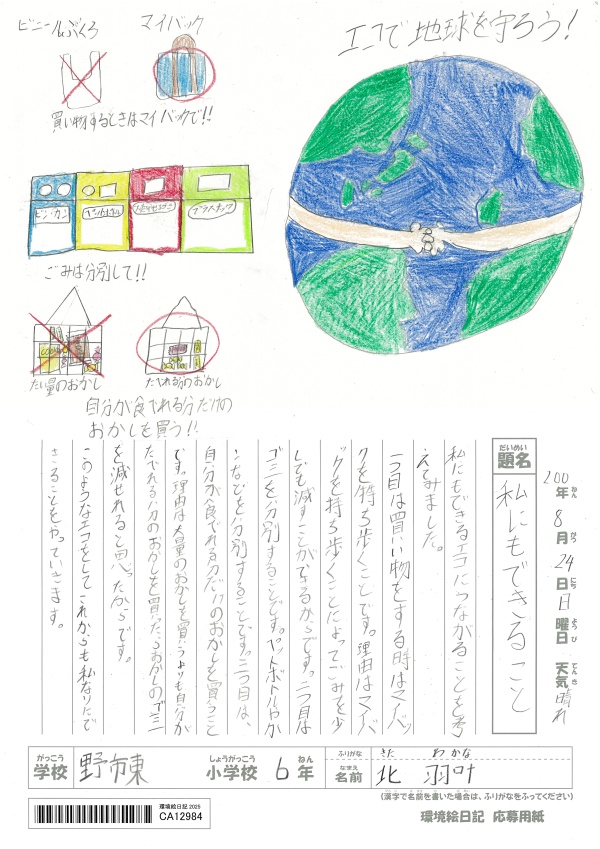 ビニールぶくろ
マイバック
買い物するときはマイバックで!!
エコで地球を守ろう!
ビン・カン
ペットボトル
プラスチック
ごみは分別して!!
たい量のおかし
たべれる分のおかし
自分が食べれる分だけの
おかしを買う!!
だいめい
題名
私にもできること
200年 8月 24日 日曜日 天気 晴れ
ねん がつ にち ようび てんき
私にもできるエコにつながることを考
えてみました。
一つ目は買い物をする時はマイバッ
クを持ち歩くことです。理由はマイバ
ックを持ち歩くことによってごみを少
しでも減すことができるからです。二つ目は
ゴミを分別することです。ペットボトルやカ
ンなどを分別することです。三つ目は、
自分が食べれる分だけのおかしを買うこと
です。理由は大量のおかしを買うよりも自分が
たべれる分のおかしを買ったらおかしのゴミ
を減せれると思ったからです。
このようなエコをしてこれからも私なりにで
きることをやっていきます。
がっこう しょうがっこう ねん ふりがな きた わかな
学校 野市東 小学校 6年 なまえ 名前 北 羽叶
(漢字で名前を書いた場合は、ふりがなをふってください)
環境絵日記 2025
CA12984
環境絵日記 応募用紙